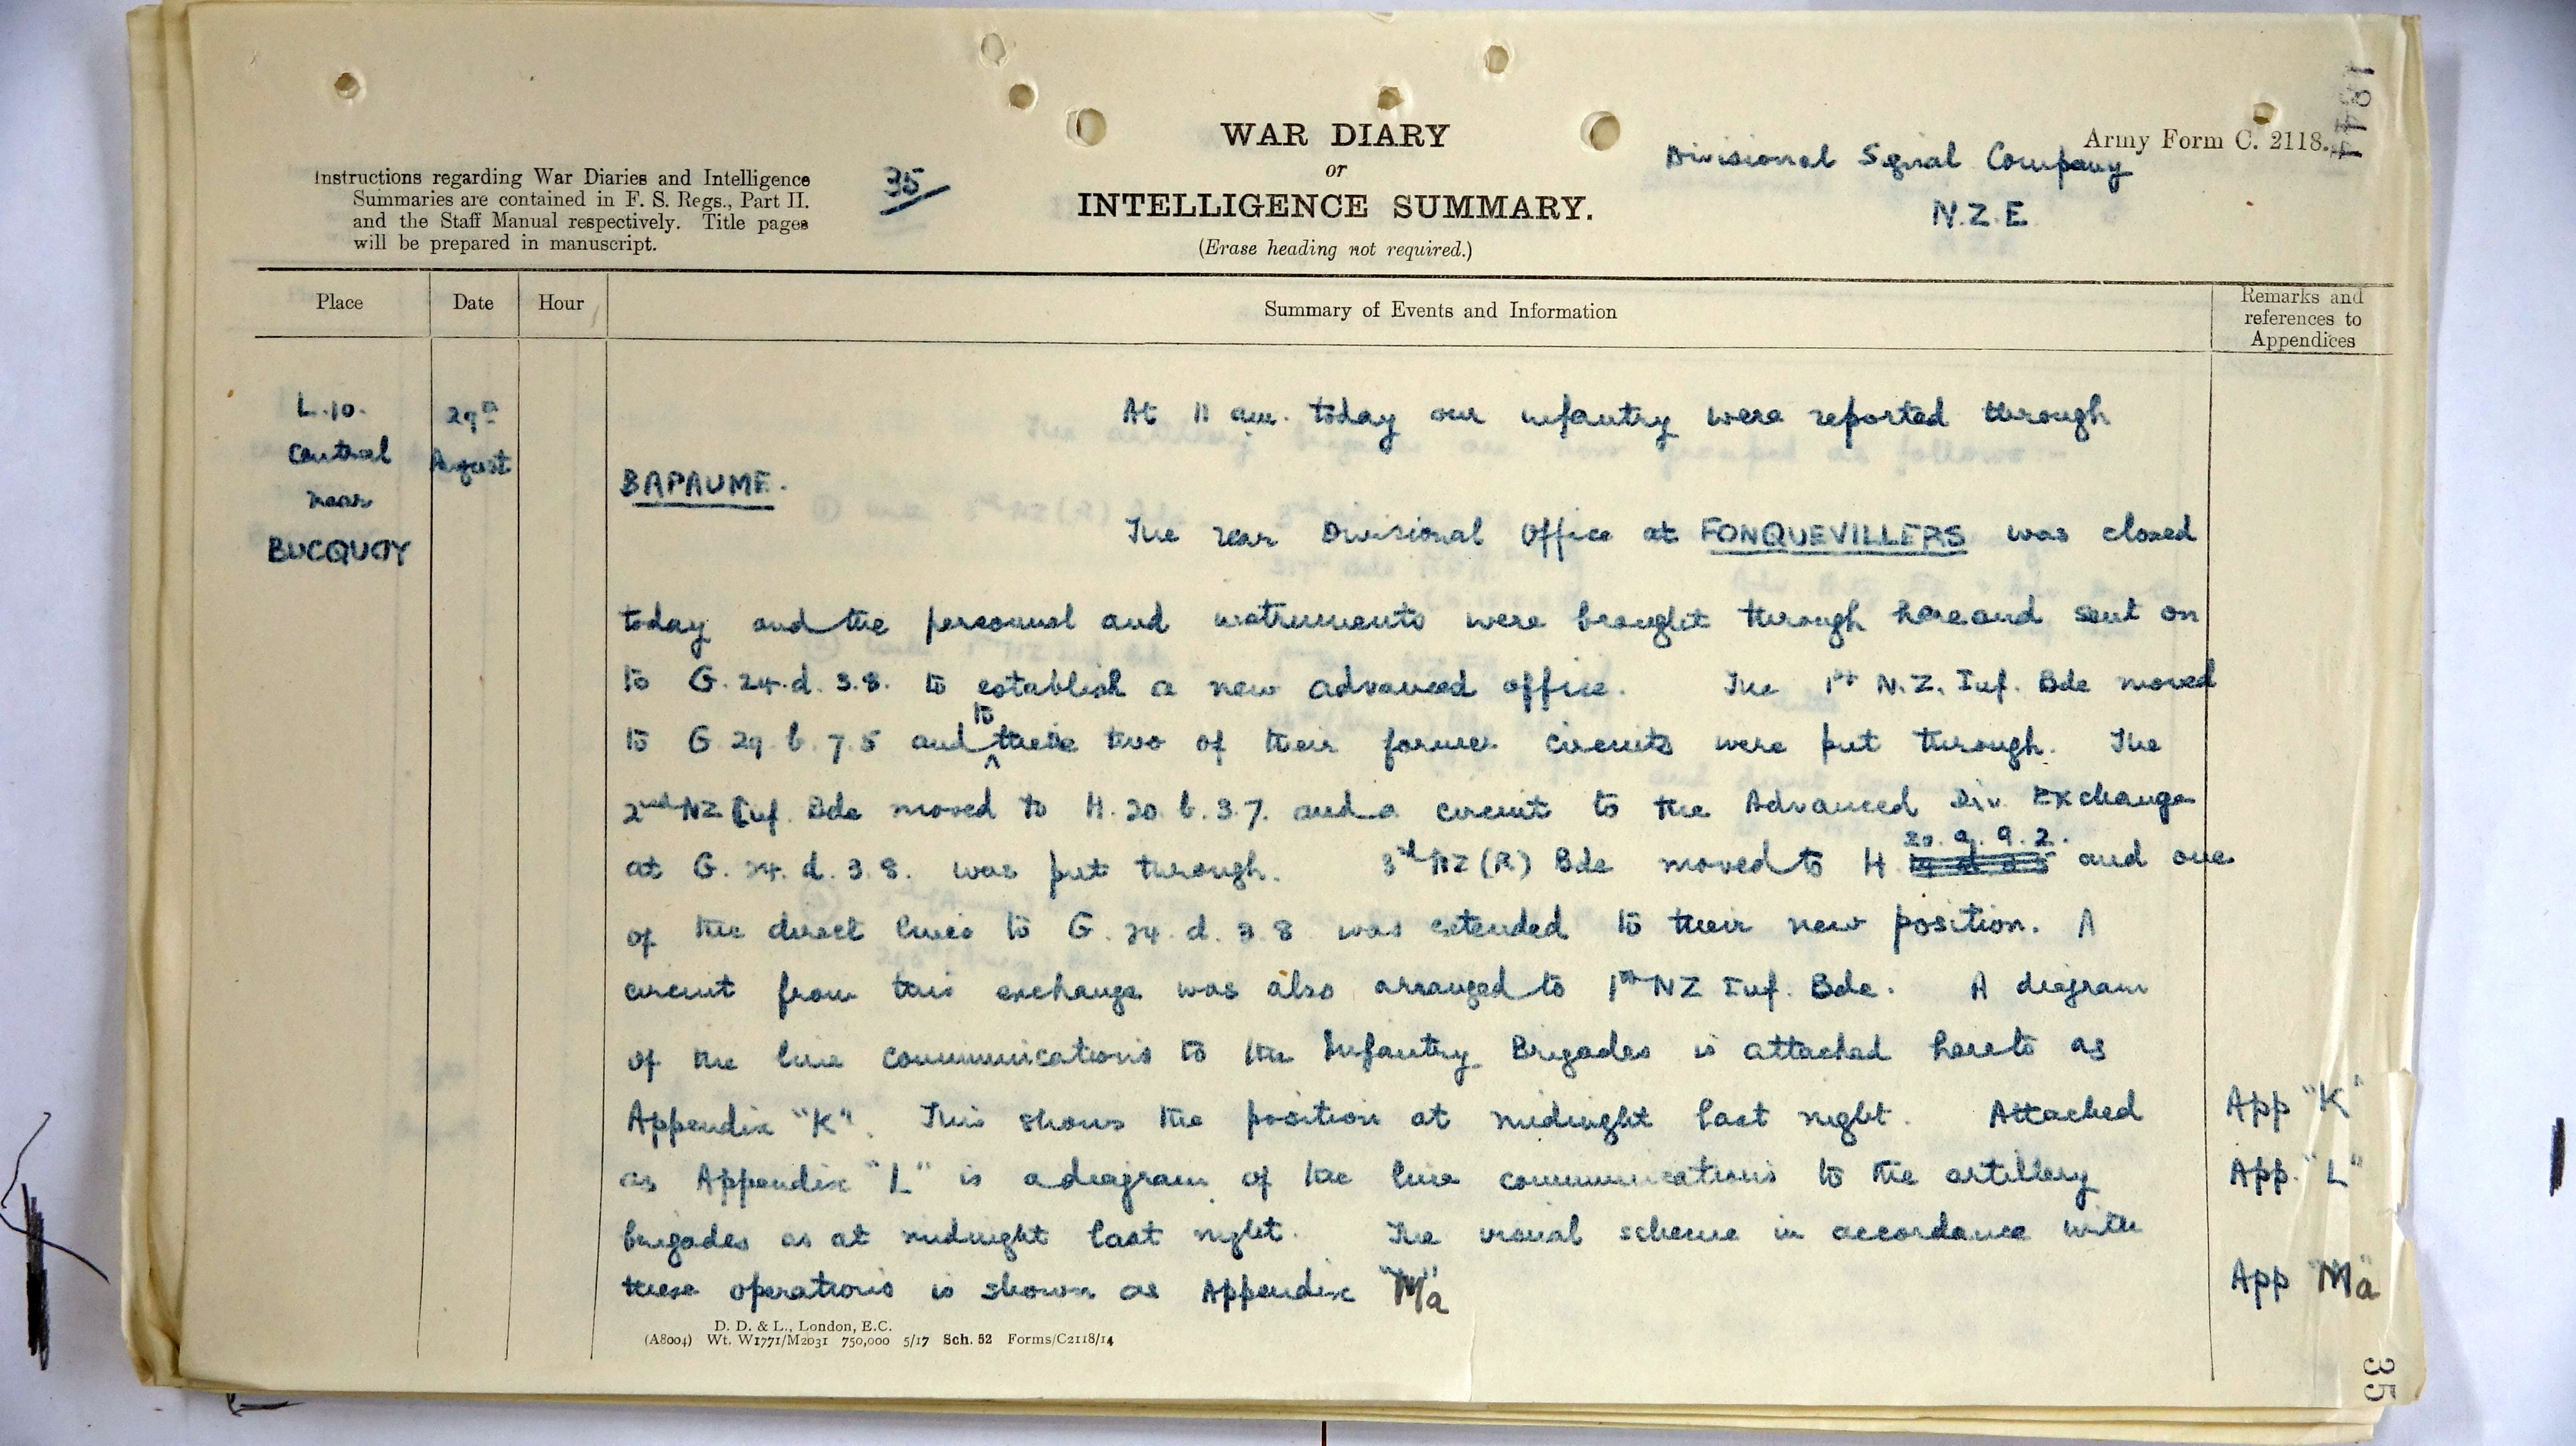 WAR DIARY
or
INTELLIGENCE SUMMARY.
(Erase heading not required.)
Instructions regarding War Diaries and Intelligence
Summaries are contained in F. S. Regs., Part II.
and the Staff Manual respectively. Title pages
will be prepared in manuscript.
35
Army Form C. 2118.
Divisional Signal Company
N.Z.E.
Place
Date
Hour
Summary of Events and Information
Remarks and
references to
Appendices
L.10.
Central
near
BUCQUOY
29th
August
At 11 am. today our infantry were reported through
BAPAUME.
The rear Divisional Office at FONQUEVILLERS was closed
today and the personnel and instruments were brought through here and sent on
to G.24.d.3.8. to establish a new advanced office. The 1st N.Z. Inf. Bde moved
to G 29 b. 7.5 and to these two of their former circuits were put through. The
2nd NZ Inf. Bde moved to H.20.b.3.7. and a circuit to the Advanced Div. Exchange
at G.24.d.3.8. was put through. 3rd NZ (R) Bde moved to H 20. a. 9. 2. and one
of the direct lines to G.24.d.3.8 was extended to their new position. A
circuit from this exchange was also arranged to 1st NZ Inf. Bde. A diagram
of the line communications to the Infantry Brigades is attached hereto as
Appendix "K". This shows the position at midnight last night. Attached
as Appendix "L" is a diagram of the line communications to the artillery
brigades as at midnight last night. The visual scheme in accordance with
these operations is shown as Appendix "Ma"
App "K"
App. "L"
App "Ma"
D. D. & L., London, E.C.
(A8004) Wt. W1771/M2031 750,000 5/17 Sch. 52 Forms/C2118/14
35